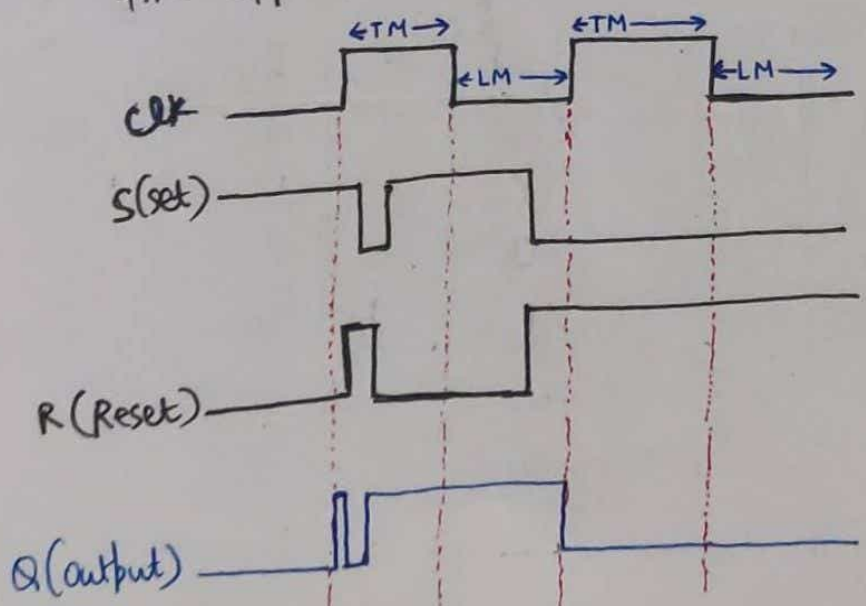 ←TM→ ←TM→
←LM→ ←LM→
Clk
S(set)
R(Reset)
Q(output)